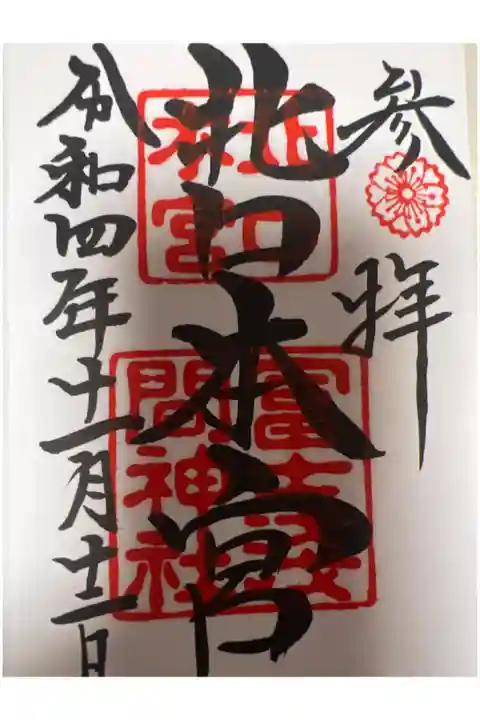 参拝
北口本宮
北口本宮
冨士浅間神社
令和四年十一月十二日